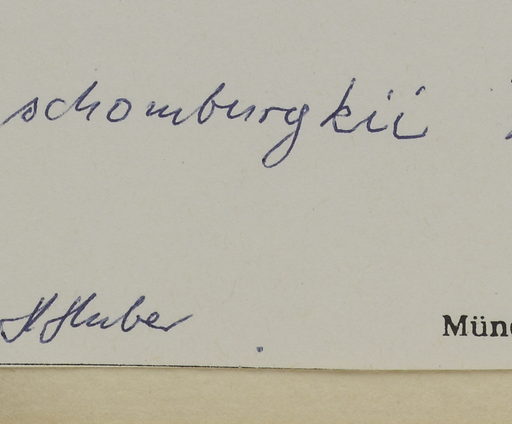 schomburgkii
H Huber
Münc